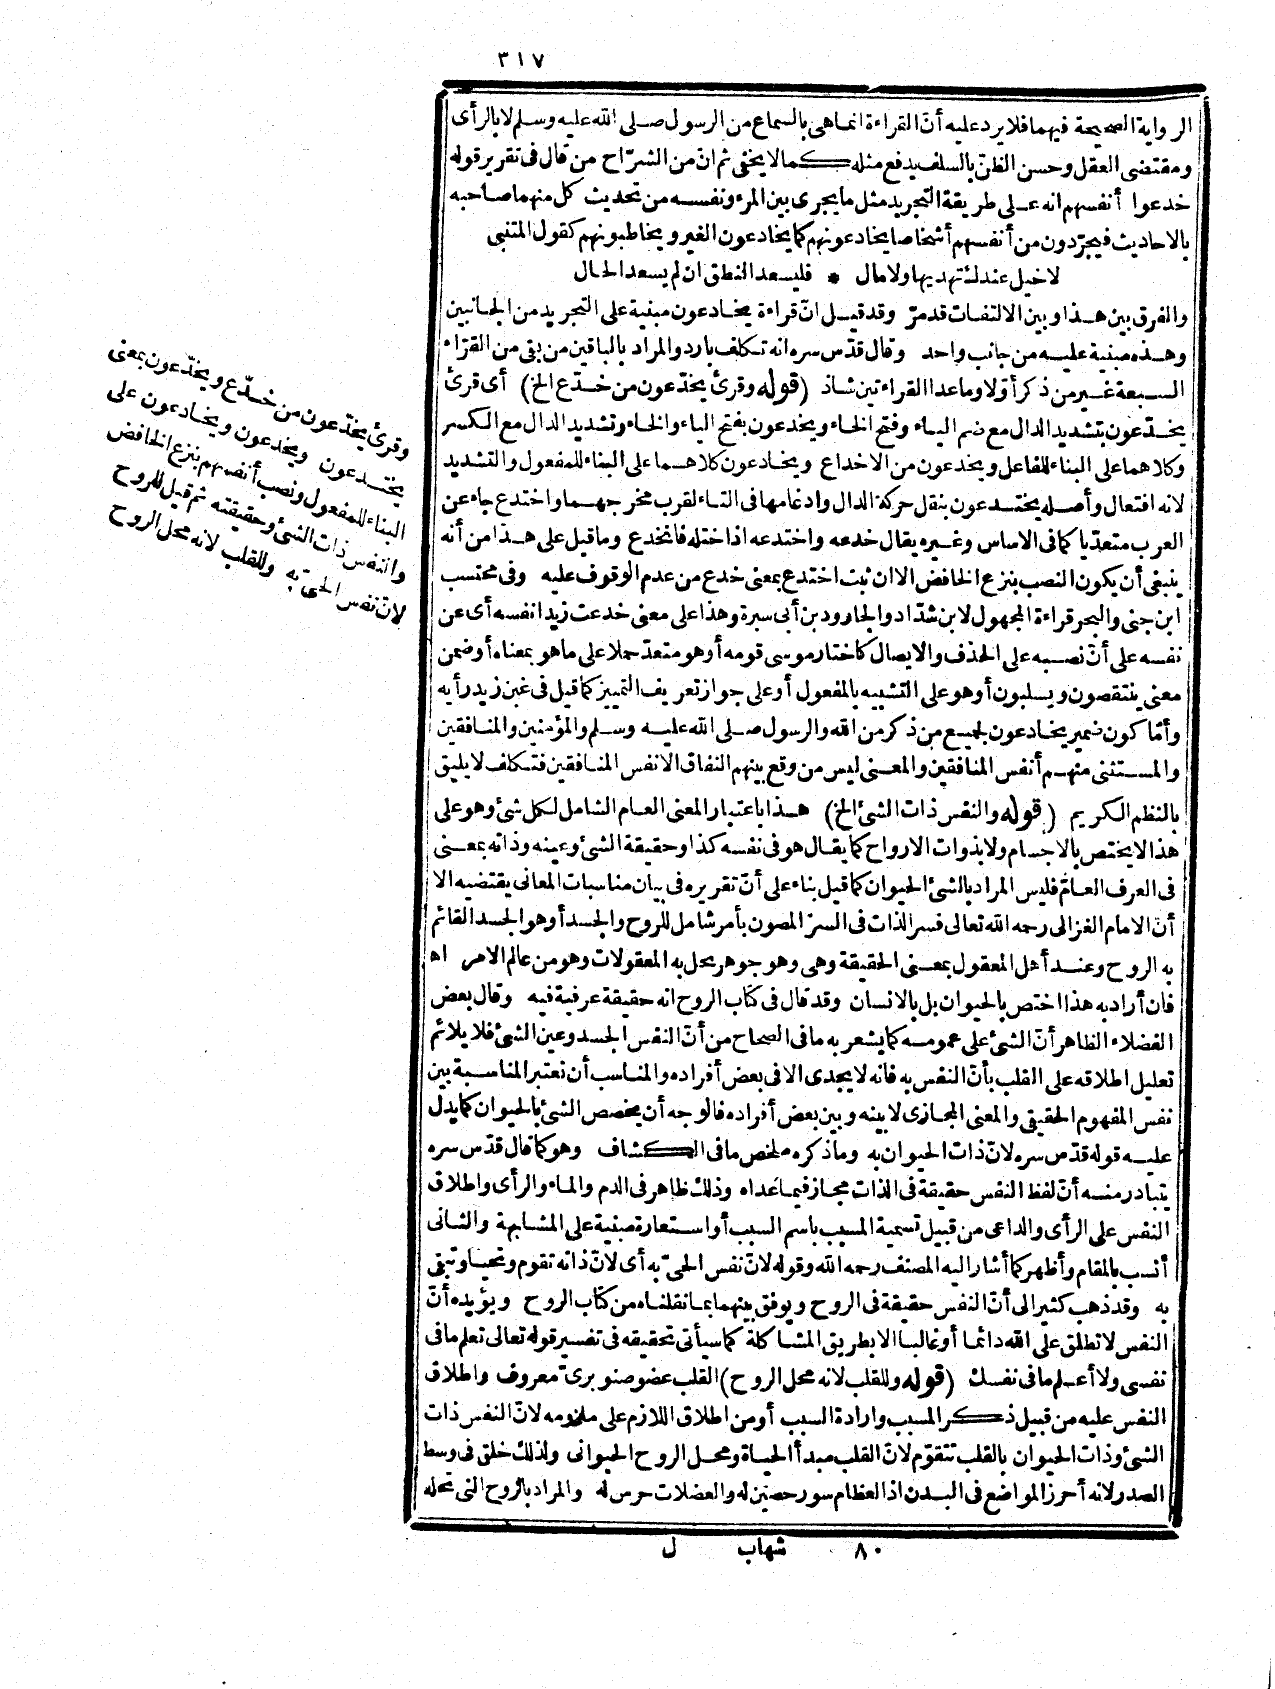 ٣١٧
الرواية الصحيحة فيهما فلا يرد عليه أنّ القراءة انما هى بالسماع من الرسول صلى الله عليه وسلم لا بالرأى
ومقتضى العقل وحسن الظنّ بالسلف يدفع مثله كما لا يخفى ثم انّ من الشرّاح من قال فى تقرير قوله
خدعوا أنفسهم انه على طريقة التجريد مثل ما يجرى بين المرء ونفسه من تحديث كل منهما صاحبه
بالاحاديث فيجرّدون من أنفسهم أشخاصا يخادعونهم كما يخادعون الغير ويخاطبونهم كقول المتنبى
لا خيل عندك تهديها ولا مال * فليسعد النطق ان لم يسعد الحال
والفرق بين هذا وبين الالتفات قد مرّ وقد قيل انّ قراءة يخادعون مبنية على التجريد من الجانبين
وهذه مبنية عليه من جانب واحد وقال قدّس سره انه تكلف بارد والمراد بالباقين من بقى من القرّاء
السبعة غير من ذكر أوّلا وما عدا القراءتين شاذ (قوله وقرئ يخدّعون من خدّع الخ) أى قرئ
يخدّعون بتشديد الدال مع ضم الياء وفتح الخاء ويخدعون بفتح الياء والخاء وتشديد الدال مع الكسر
وكلاهما على البناء للفاعل ويخدعون من الاخداع ويخادعون كلاهما على البناء للمفعول والتشديد
لانه افتعال وأصله يختدعون بنقل حركة الدال وادغامها فى التاء لقرب مخرجهما واختدع جاء عن
العرب متعدّيا كما فى الاساس وغيره يقال خدعه واختدعه اذا ختله فانخدع وما قيل على هذا من أنه
ينبغى أن يكون النصب بنزع الخافض الا ان ثبت اختدع بمعنى خدع من عدم الوقوف عليه وفى محتسب
ابن جنى والبحر قراءة المجهول لابن شدّاد والجارود بن أبى سبرة وهذا على معنى خدعت زيدا نفسه أى عن
نفسه على أنّ نصبه على الحذف والايصال كاختار موسى قومه أو هو متعدّ حملا على ما هو بمعناه أو ضمن
معنى ينتقصون ويسلبون أو هو على التشبيه بالمفعول أو على جواز تعريف التمييز كما قيل فى غبن زيد رأيه
وأمّا كون ضمير يخادعون لجميع من ذكر من الله والرسول صلى الله عليه وسلم والمؤمنين والمنافقين
والمستثنى منهم أنفس المنافقين والمعنى ليس من وقع بينهم النفاق الا نفس المنافقين فتكلف لا يليق
بالنظم الكريم (قوله والنفس ذات الشئ الخ) هذا باعتبار المعنى العام الشامل لكل شئ وهو على
هذا لا يختص بالاجسام ولا بذوات الارواح كما يقال هو فى نفسه كذا وحقيقة الشئ وعينه وذاته بمعنى
فى العرف العامّ فليس المراد بالشئ الحيوان كما قيل بناء على أنّ تقريره فى بيان مناسبات المعانى يقتضيه الا
أنّ الامام الغزالى رحمه الله تعالى فسر الذات فى السرّ المصون بأمر شامل للروح والجسد أو هو الجسد القائم
به الروح وعند أهل المعقول بمعنى الحقيقة وهى وهو جوهر يحل به المعقولات وهو من عالم الامر اه
فان أراد به هذا اختص بالحيوان بل بالانسان وقد قال فى كتاب الروح انه حقيقة عرفية فيه وقال بعض
الفضلاء الظاهر أنّ الشئ على عمومه كما يشعر به ما فى الصحاح من أنّ النفس الجسد وعين الشئ فلا يلائم
تعليل اطلاقه على القلب بأنّ النفس به فانه لا يجدى الا فى بعض أفراده والمناسب أن نعتبر المناسبة بين
نفس المفهوم الحقيقى والمعنى المجازى لا بينه وبين بعض أفراده فالوجه أن يخصص الشئ بالحيوان كما يدل
عليه قوله قدّس سره لانّ ذات الحيوان به وما ذكره ملخص ما فى الكشاف وهو كما قال قدّس سره
يتبادر منه أنّ لفظ النفس حقيقة فى الذات مجاز فيما عداه وذلك ظاهر فى الدم والماء والرأى واطلاق
النفس على الرأى والداعى من قبيل تسمية المسبب باسم السبب أو استعارة مبنية على المشابهة والثانى
أنسب بالمقام وأظهر كما أشار اليه المصنف رحمه الله وقوله لانّ نفس الحىّ به أى لانّ ذاته تقوم وتحيا وتبقى
به وقد ذهب كثير الى أنّ النفس حقيقة فى الروح ويوفق بينهما بما نقلناه من كتاب الروح ويؤيده أنّ
النفس لا تطلق على الله دائما أو غالبا الا بطريق المشاكلة كما سيأتى تحقيقه فى تفسير قوله تعالى تعلم ما فى
نفسى ولا أعلم ما فى نفسك (قوله وللقلب لانه محل الروح) القلب عضو صنوبرىّ معروف واطلاق
النفس عليه من قبيل ذكر المسبب وارادة السبب أو من اطلاق اللازم على ملزومه لانّ النفس ذات
الشئ وذات الحيوان بالقلب تتقوّم لانّ القلب مبدأ الحياة ومحل الروح الحيوانى ولذلك خلق فى وسط
الصدر لانه أحرز المواضع فى البدن اذ العظام سور حصين له والعضلات حرس له والمراد بالروح التى تحله
وقرئ يخدّعون من خدّع ويخدّعون بمعنى
يختدعون ويخدعون ويخادعون على
البناء للمفعول ونصب أنفسهم بنزع الخافض
والنفس ذات الشئ وحقيقته ثم قيل للروح
لانّ نفس الحىّ به وللقلب لانه محل الروح
٨٠ شهاب ل